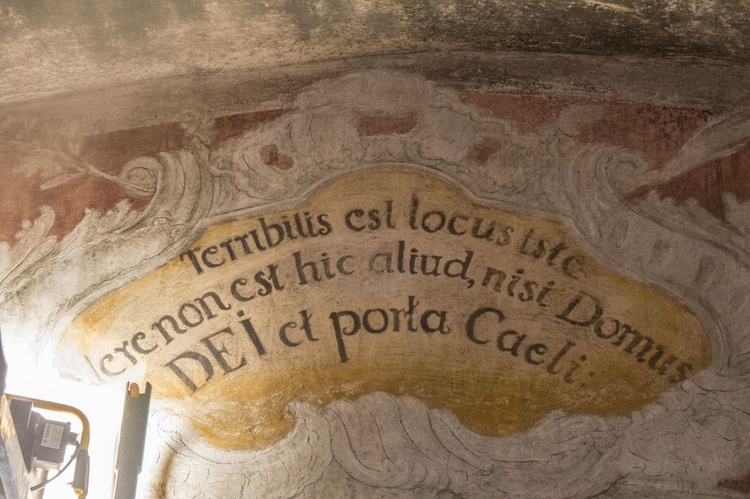 Terribilis est locus iste
vere non est hic aliud, nisi Domus
DEI et porta Caeli: